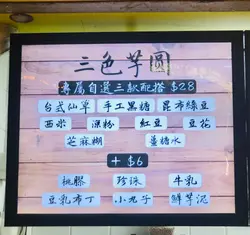 三色芋圓
專屬自選三款配搭 $28
台式仙草 手工黑糖 昆布綠豆
西米 涼粉 紅豆 豆花
芝麻糊 薑糖水
+ $6
桃膠 珍珠 牛乳
豆乳布丁 小丸子 鮮芋泥